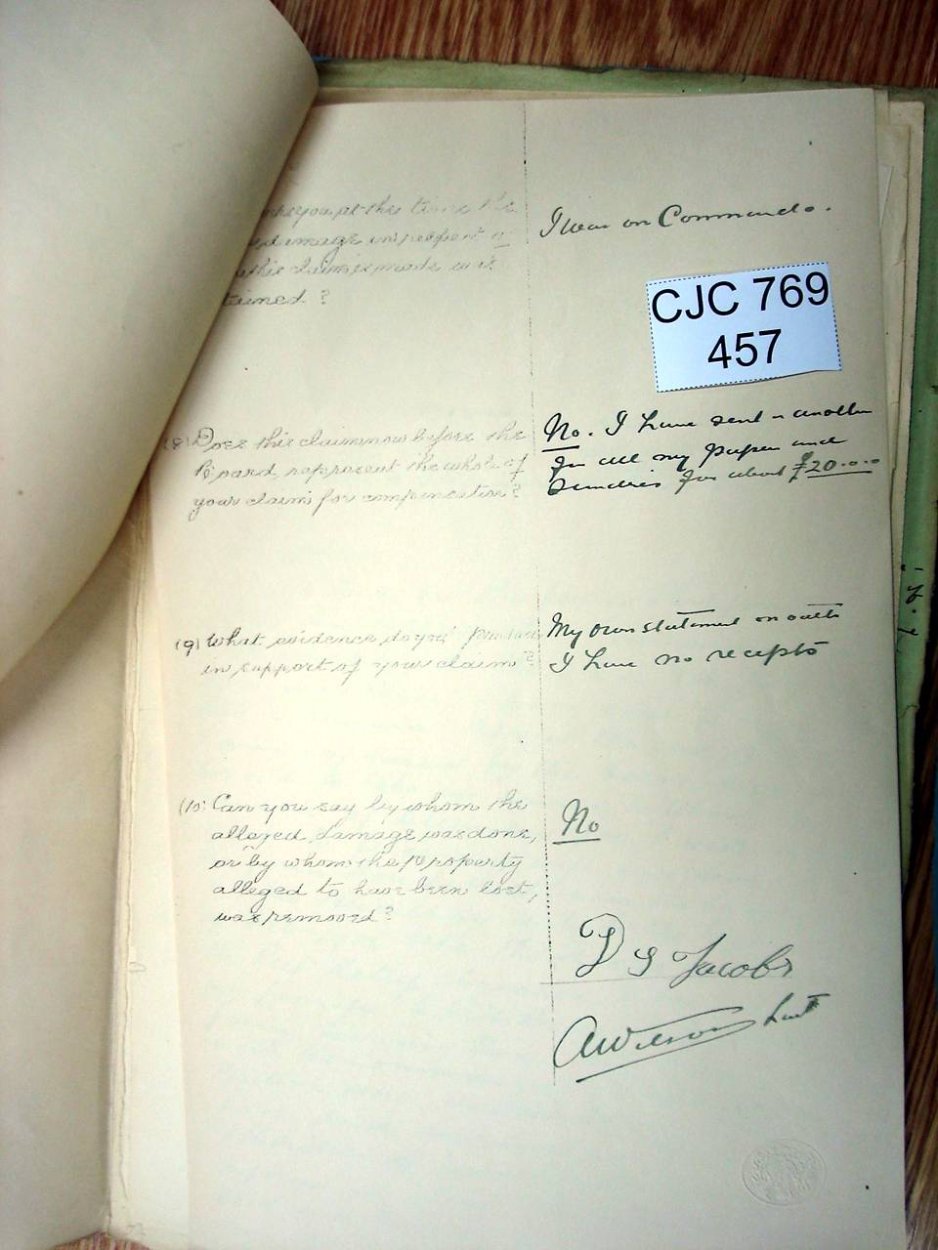 you at the time the
damage in respect of
this claim is made was
tained ?
I was on Commando.
CJC 769
457
(8) Does this claim now before the
Board represent the whole of
your claim for compensation?
No. I have sent in another
for all my papers and
Sundries for about £20.0.0
(9) What evidence do you produce
in support of your claim?
My own statement on oath
I have no recepts
(10) Can you say by whom the
alleged damage was done,
or by whom the property
alleged to have been lost,
was removed?
No
D S Jacobs
AWilson Lieut